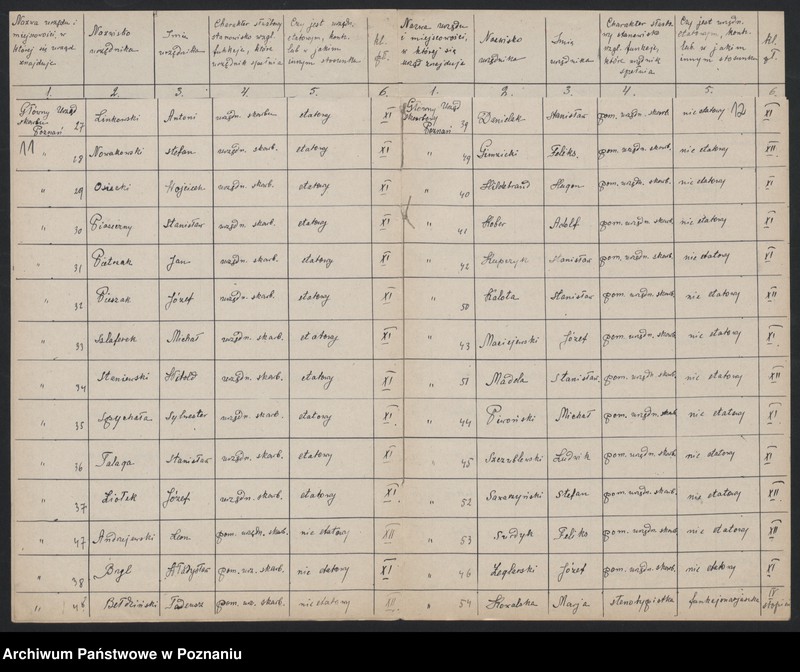 Nazwa urzędu i
miejscowości, w
której się urząd
znajduje
Nazwisko
urzędnika
Imię
urzędnika
Charakter służbowy
stanowisko wzgl.
funkcje, które
urzędnik spełnia
Czy jest urzędn.
etatowym, kontr.
lub w jakim
innym stosunku
kl.
1. 2. 3. 4. 5. 6.
Główny Urząd
skarbu
Poznań 27 Linkowski Antoni urzędn. skarbu etatowy XI
11 28 Nowakowski Stefan urzędn. skarb. etatowy XI
" 29 Osiecki Wojciech urzędn. skarb. etatowy XI
" 30 Stanisław urzędn. skarb. etatowy XI
" 31 Pietrzak Jan urzędn. skarb. etatowy XI
" 32 Józef urzędn. skarb. etatowy XI
" 33 Szlaforek Michał urzędn. skarb. etatowy XI
" 34 Staniewski Witold urzędn. skarb. etatowy XI
" 35 Spychała Sylwester urzędn. skarb. etatowy XI
" 36 Talaga Stanisław urzędn. skarb. etatowy XI
" 37 Ziołek Józef urzędn. skarb. etatowy XI
" 47 Andrzejewski Leon pom. urzędn. skarb. nie etatowy XII
" 38 Brył Władysław pom. urz. skarb. nie etatowy XI
" 48 Bełdziński Tadeusz pom. urz. skarb. nie etatowy XII
Nazwa urzędu
i miejscowości,
w której się
urząd znajduje
Nazwisko
urzędnika
Imię
urzędnika
Charakter służbo
wy stanowisko
wzgl. funkcje,
które urzędnik
spełnia
Czy jest urzędn.
etatowym, kontr.
lub w jakim
innym stosunku
kl.
1. 2. 3. 4. 5. 6.
Główny Urząd
skarbowy
Poznań 39 Danielak Stanisław pom. urzędn. skarb. nie etatowy 12 XI
" 49 Feliks pom. urzędn. skarb. nie etatowy XII
" 40 Hildebrand Hugon pom. urzędn. skarb. nie etatowy XI
" 41 Hober Adolf pom. urzędn. skarb. nie etatowy XI
" 42 Stanisław pom. urzędn. skarb. nie etatowy XI
" 50 Kalota Stanisław pom. urzędn. skarb. nie etatowy XII
" 43 Maciejewski Józef pom. urzędn. skarb. nie etatowy XI
" 51 Madela Stanisław pom. urzędn. skarb. nie etatowy XII
" 44 Piwoński Michał pom. urzędn. skarb. nie etatowy XI
" 45 Szczublewski Ludwik pom. urzędn. skarb. nie etatowy XI
" 52 Saraczyński Stefan pom. urzędn. skarb. nie etatowy XII
" 53 Feliks pom. urzędn. skarb. nie etatowy XII
" 46 Zeglerski Józef pom. urzędn. skarb. nie etatowy XI
" 54 Kowalska Marja stenotypistka funkcjonarjuszka IV
stopień
Archiwum Państwowe w Poznaniu